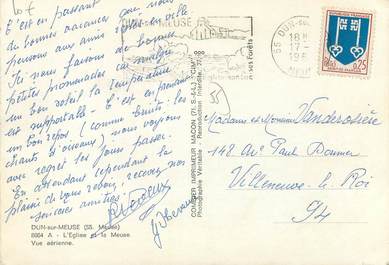 C'est en passant
de bonnes vacances que nous
pensons aux amis
Ici nous faisons de bonnes
petites promenades car malgré
un bon soleil la température
est supportable. C'est en prenant
un bon repos (comme bruits: les
chants d'oiseau) nous voyons
avec regret les jours passer.
En attendant cependant le
plaisir de vous revoir, recevez nos
sincères amitiés.
DUN-sur-MEUSE (55. Meuse)
8664 A - L'Eglise et la Meuse
Vue aérienne.
COMBIER IMPRIMEUR MACON (71. S.-&-L.) "CIM"
Photographie Véritable - Reproduction interdite.
DUN-sur-MEUSE
ses Forêts
55 DUN-sur
18 H
17-
0,25
55
Madame et Monsieur Vanderosière
148 Av. Paul Doumer
Villeneuve-le-Roi
94